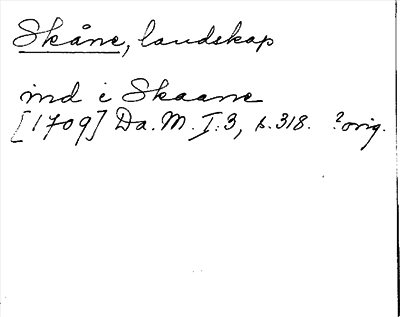 Skåne, landskap
ind i Skaane
[1709] Da. M. I:3, s. 318. ?orig.